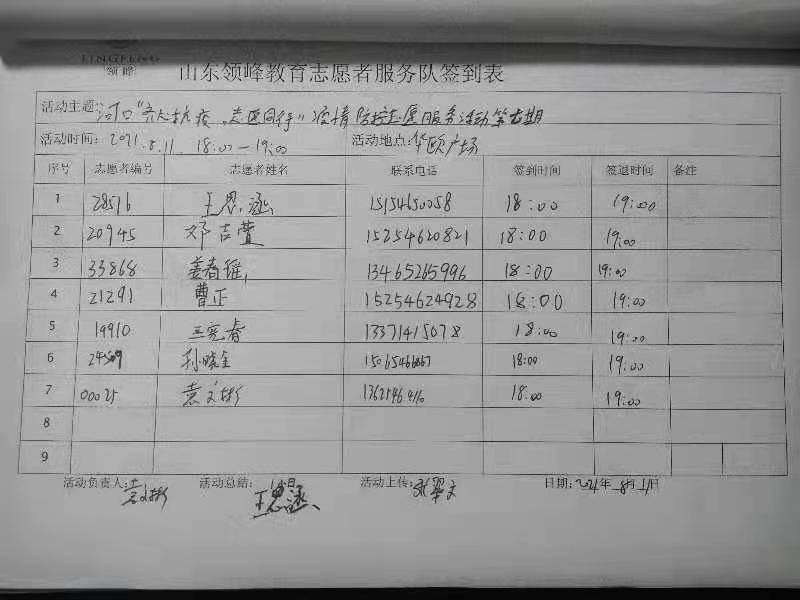 LINGFENG
领峰
山东领峰教育志愿者服务队签到表
活动主题: 河口"齐心抗疫，志愿同行"疫情防控志愿服务活动第七期
活动时间: 2021.8.11. 18:00—19:00 活动地点: 华欧广场
序号 志愿者编号 志愿者姓名 联系电话 签到时间 签退时间 备注
1 28516 王思涵 15154650058 18:00 19:00
2 20945 邓吉萱 15254620821 18:00 19:00
3 33868 姜春瑶 13465265996 18:00 19:00
4 21291 曹正 15254624928 18:00 19:00
5 19910 王宪春 13371415078 18:00 19:00
6 孙晓全 18:00 19:00
7 00025 袁文彬 18:00 19:00
8
9
活动负责人: 袁文彬 活动总结: 王思涵 活动上传: 张翠文 日期: 2021年 8月 11日